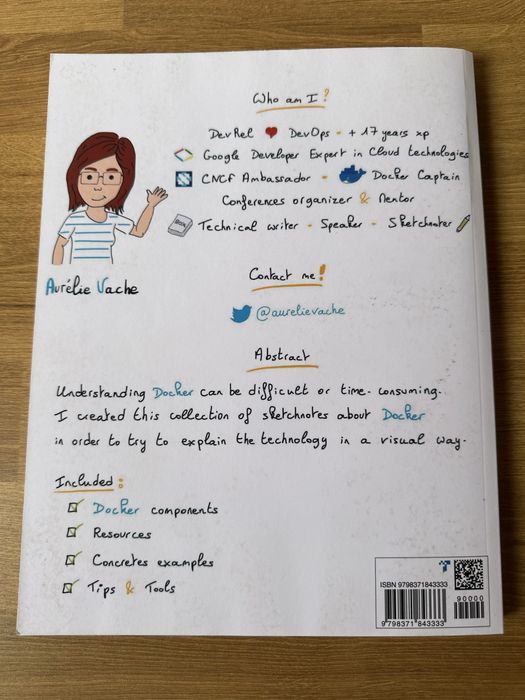 Who am I ?
DevRel ❤ DevOps - + 17 years xp
Google Developer Expert in Cloud technologies
CNCF Ambassador - Docker Captain
Conferences organizer & Mentor
Technical writer - Speaker - Sketchnoter
Aurélie Vache
Contact me !
@aurelievache
Abstract
Understanding Docker can be difficult or time-consuming.
I created this collection of sketchnotes about Docker
in order to try to explain the technology in a visual way.
Included :
Docker components
Resources
Concretes examples
Tips & Tools
ISBN 9798371843333
90000
9 798371 843333